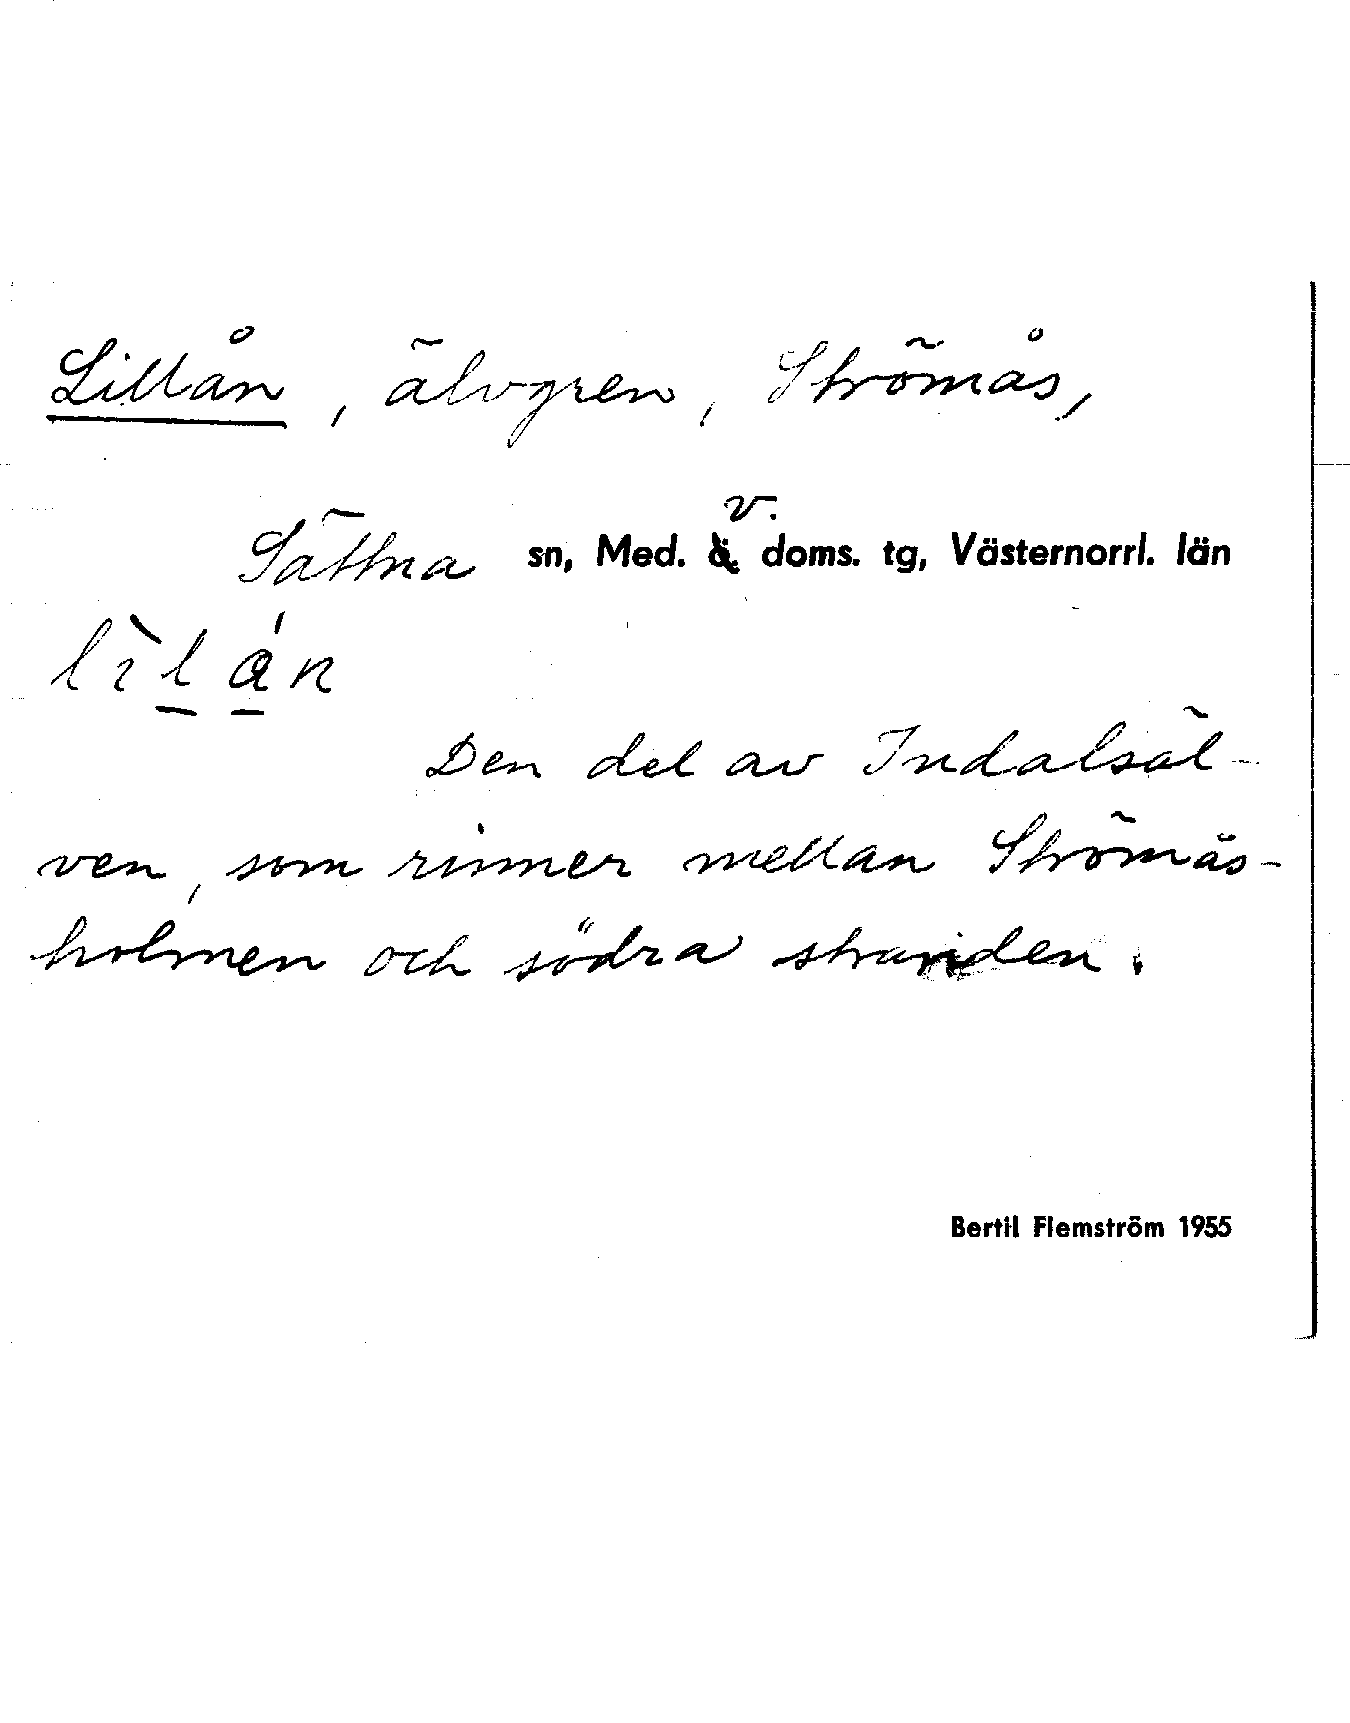 Lillån, älvgren, Strömås,
v.
Sättna sn, Med. ö. doms. tg, Västernorrl. län
lìlán
Den del av Indalsäl-
ven, som rinner mellan Strömås-
holmen och södra stranden.
Bertil Flemström 1955